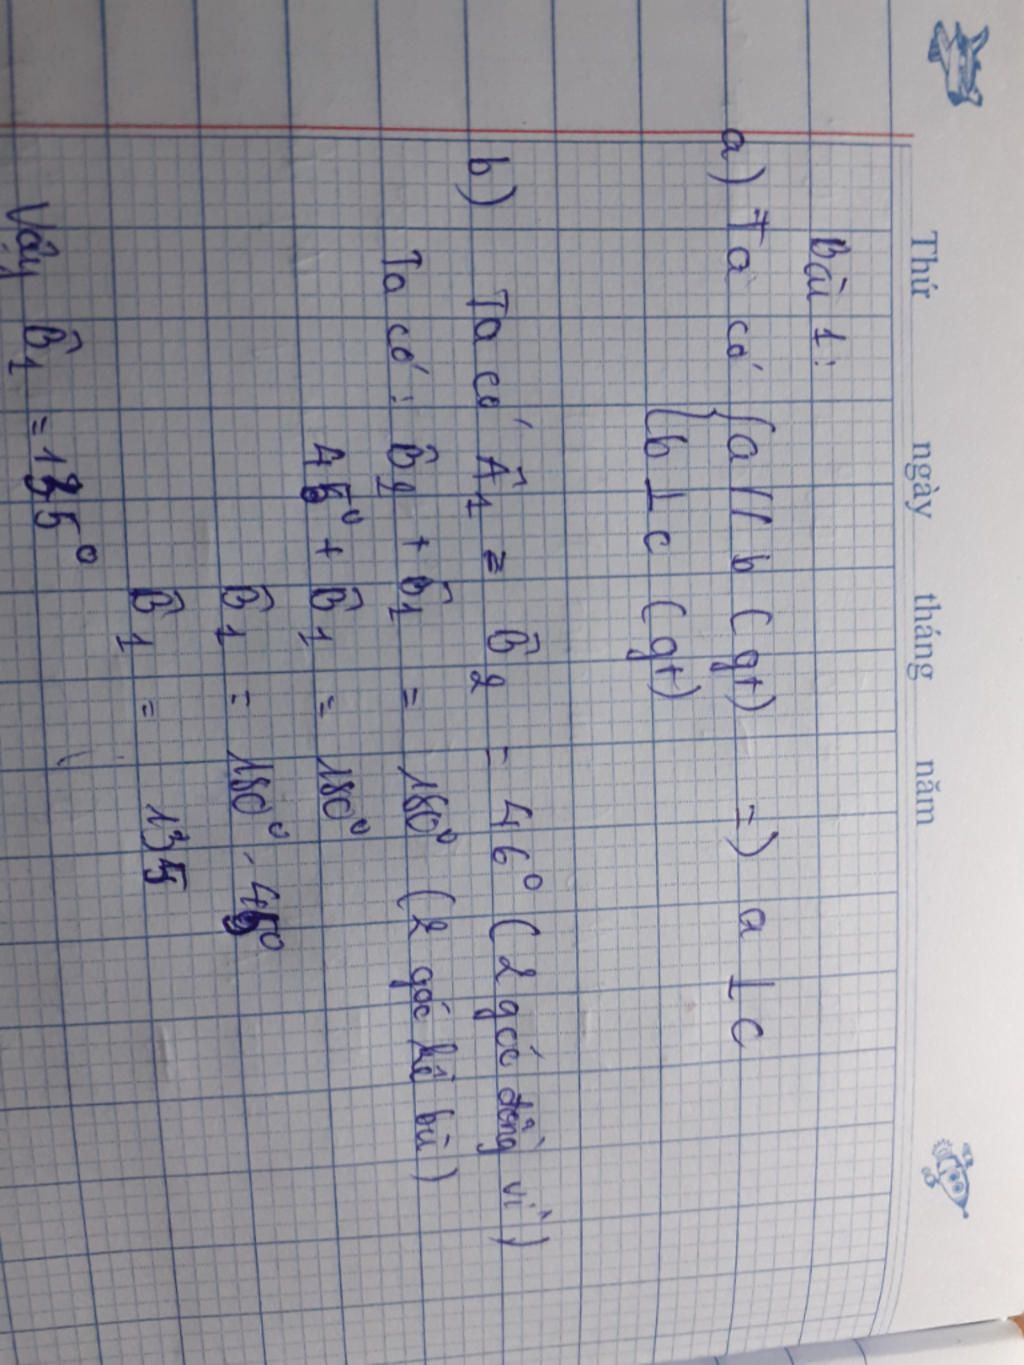 Thứ ngày tháng năm
Bài 1:
a) Ta có {a // b (gt) =) a ⊥ c
{b ⊥ c (gt)
b) Ta có Â1 = B̂2 = 46° (2 góc đồng vị)
Ta có: B̂2 + B̂1 = 180° (2 góc kề bù)
45° + B̂1 = 180°
B̂1 = 180° - 45°
B̂1 = 135
Vậy B̂1 = 135°